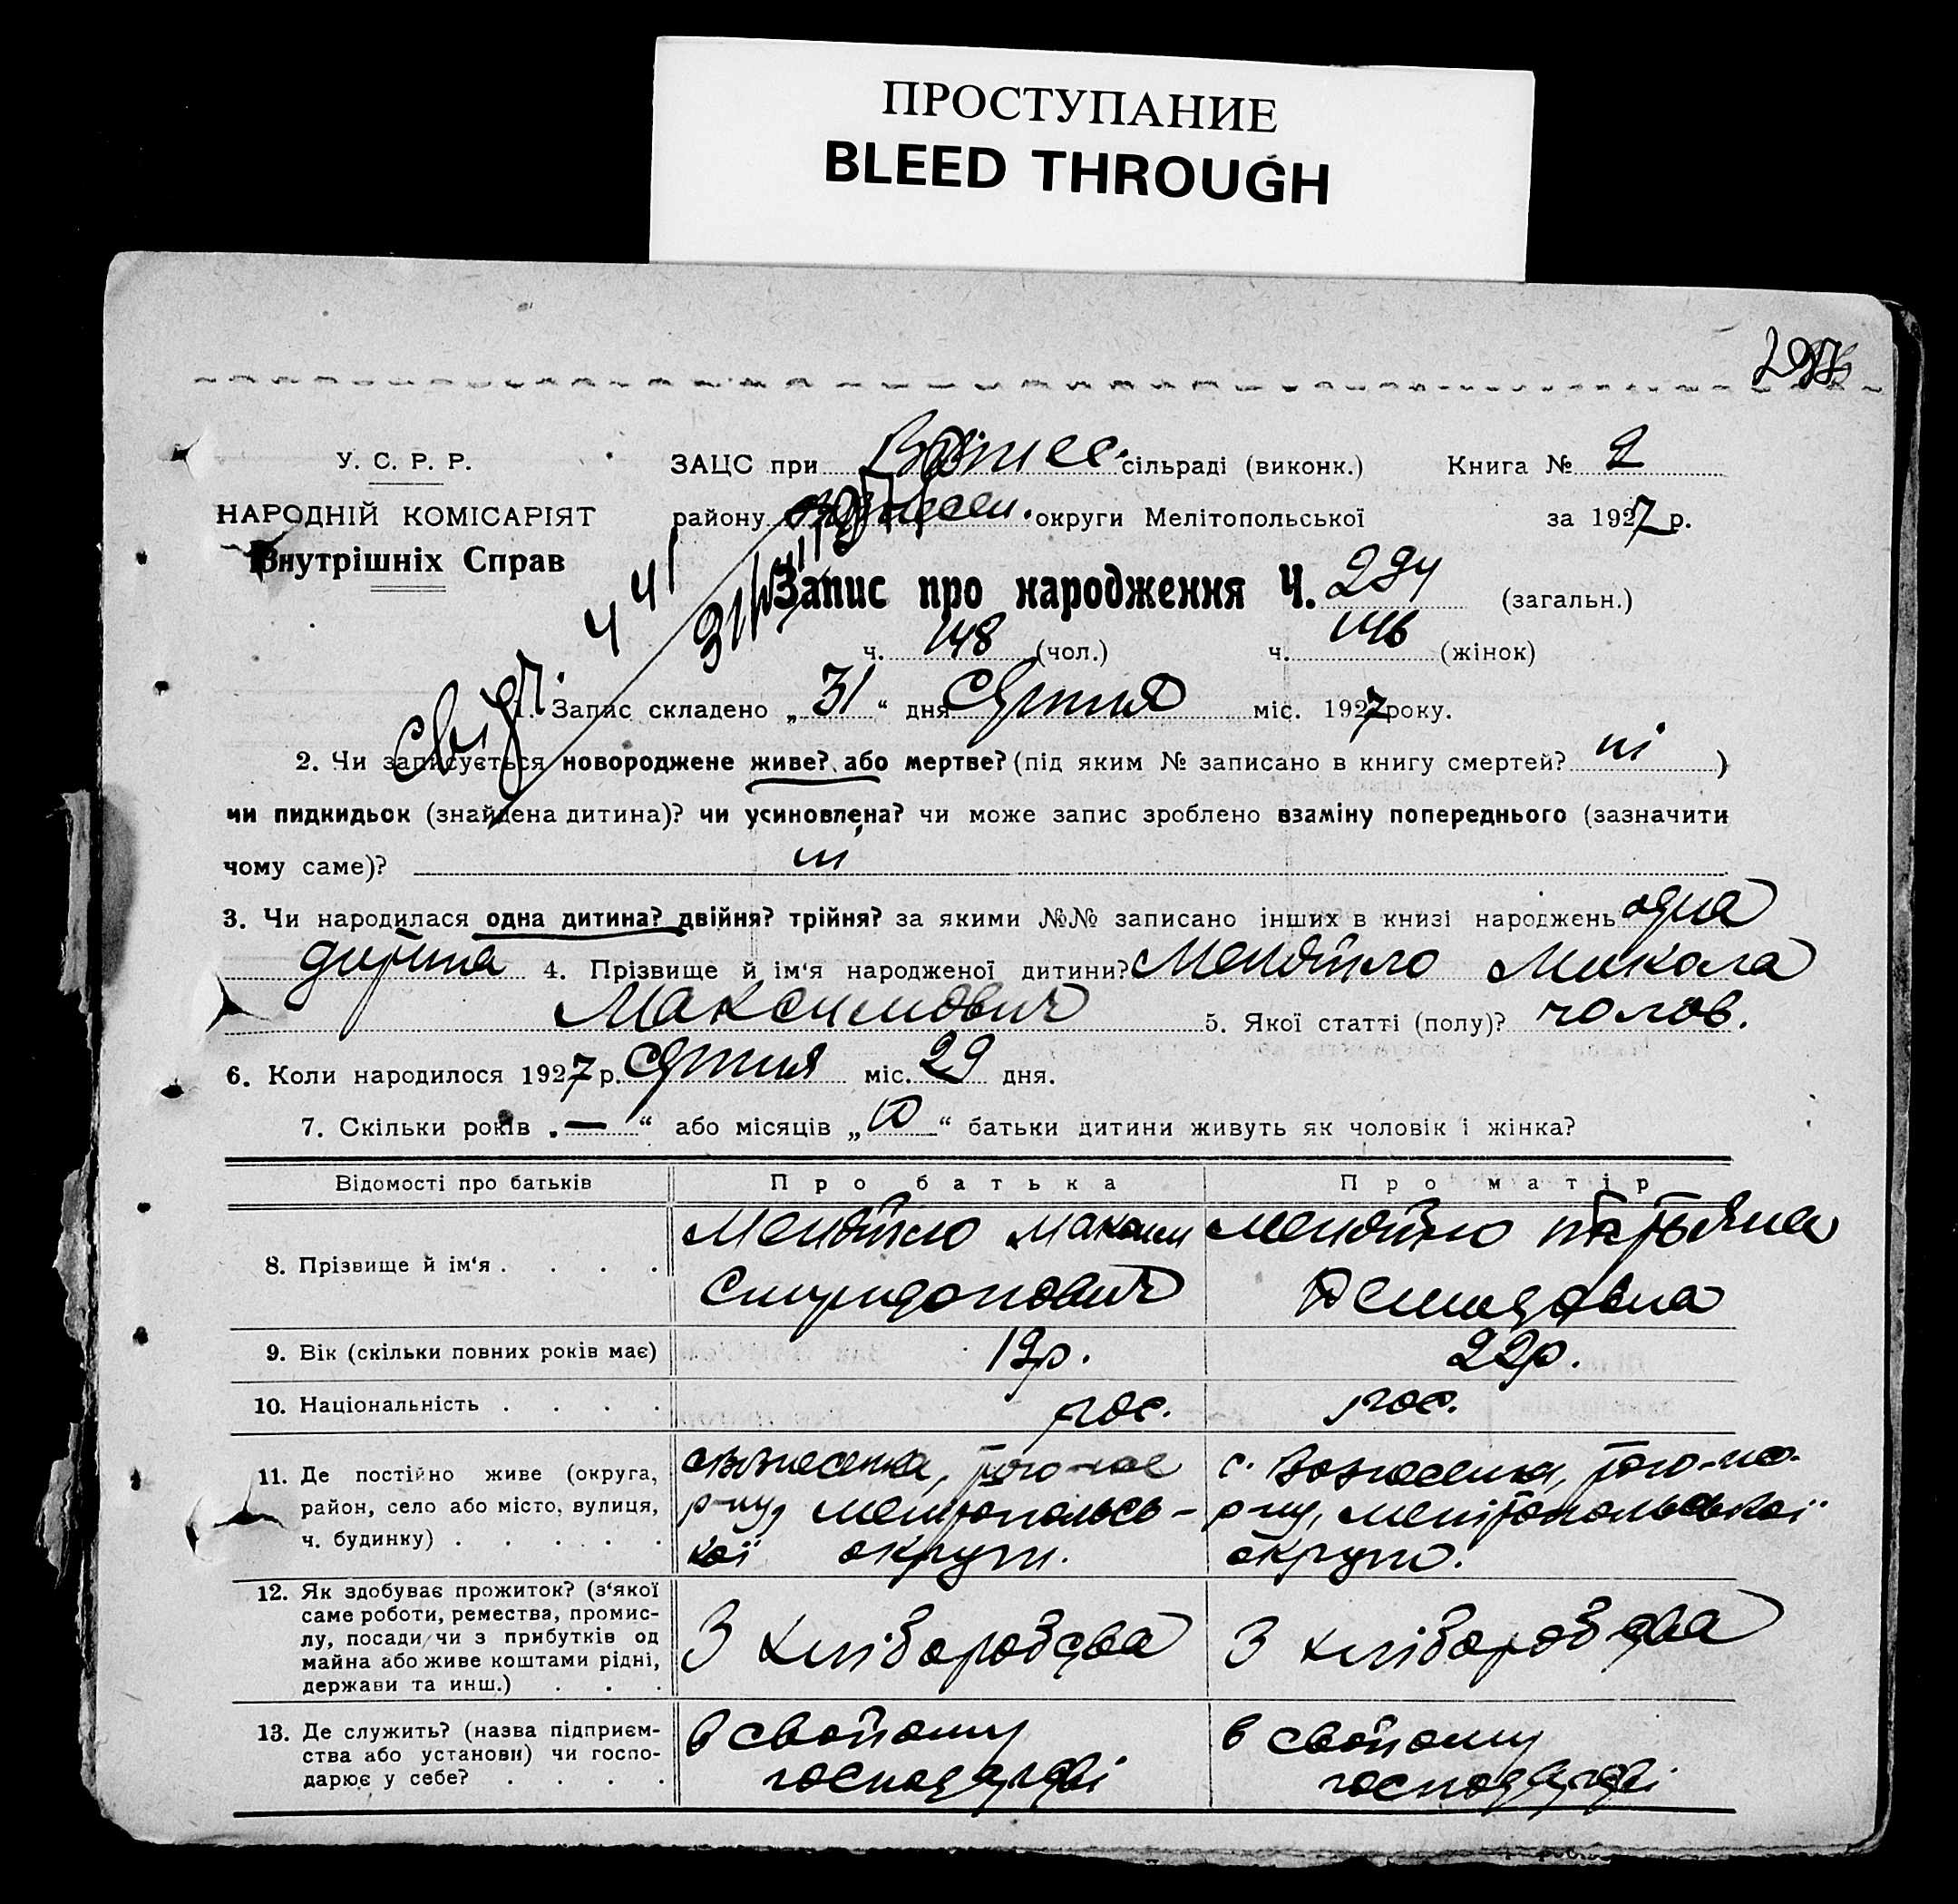 ПРОСТУПАНИЕ
BLEED THROUGH
У. С. Р. Р.
НАРОДНІЙ КОМІСАРІЯТ
Внутрішніх Справ
ЗАЦС при Вознес. сільраді (виконк.) Книга № 2
району Вознесен. округи Мелітопольської за 1927 р.
Запис про народження Ч. 294 (загальн.)
ч. 148 (чол.) ч. 146 (жінок)
1. Запис складено „31“ дня Серпня міс. 1927 року.
2. Чи записується новороджене живе? або мертве? (під яким № записано в книгу смертей? ні )
чи пидкидьок (знайдена дитина)? чи усиновлена? чи може запис зроблено взаміну попереднього (зазначити
чому саме)? ні
3. Чи народилася одна дитина? двійня? трійня? за якими №№ записано інших в книзі народжень одна
дитина 4. Прізвище й ім'я народженої дитини? Мендійло Микола
Максимович 5. Якої статті (полу)? чолов.
6. Коли народилося 1927 р. Серпня міс. 29 дня.
7. Скільки років „—“ або місяців „ “ батьки дитини живуть як чоловік і жінка?
Відомості про батьків Про батька Про матір
8. Прізвище й ім'я . . . . Мендійло Максим Спиридонович Мендійло Тетьяна Демидовна
9. Вік (скільки повних років має) 19р. 22р.
10. Національність . . . . рос. рос.
11. Де постійно живе (округа,
район, село або місто, вулиця,
ч. будинку) . . . . .
с. Вознесенка, того-же
р-ну, Мелітопольсь-
кої округи.
с. Вознесенка, того-ж.
р-ну, Мелітопольської
округи.
12. Як здобуває прожиток? (з'якої
саме роботи, ремества, промис-
лу, посади чи з прибутків од
майна або живе коштами рідні,
держави та инш.) . . .
З хліборобства З хліборобства
13. Де служить? (назва підприєм-
ства або установи) чи госпо-
дарює у себе? . . . .
в свойому
господарстві
в свойому
господарстві